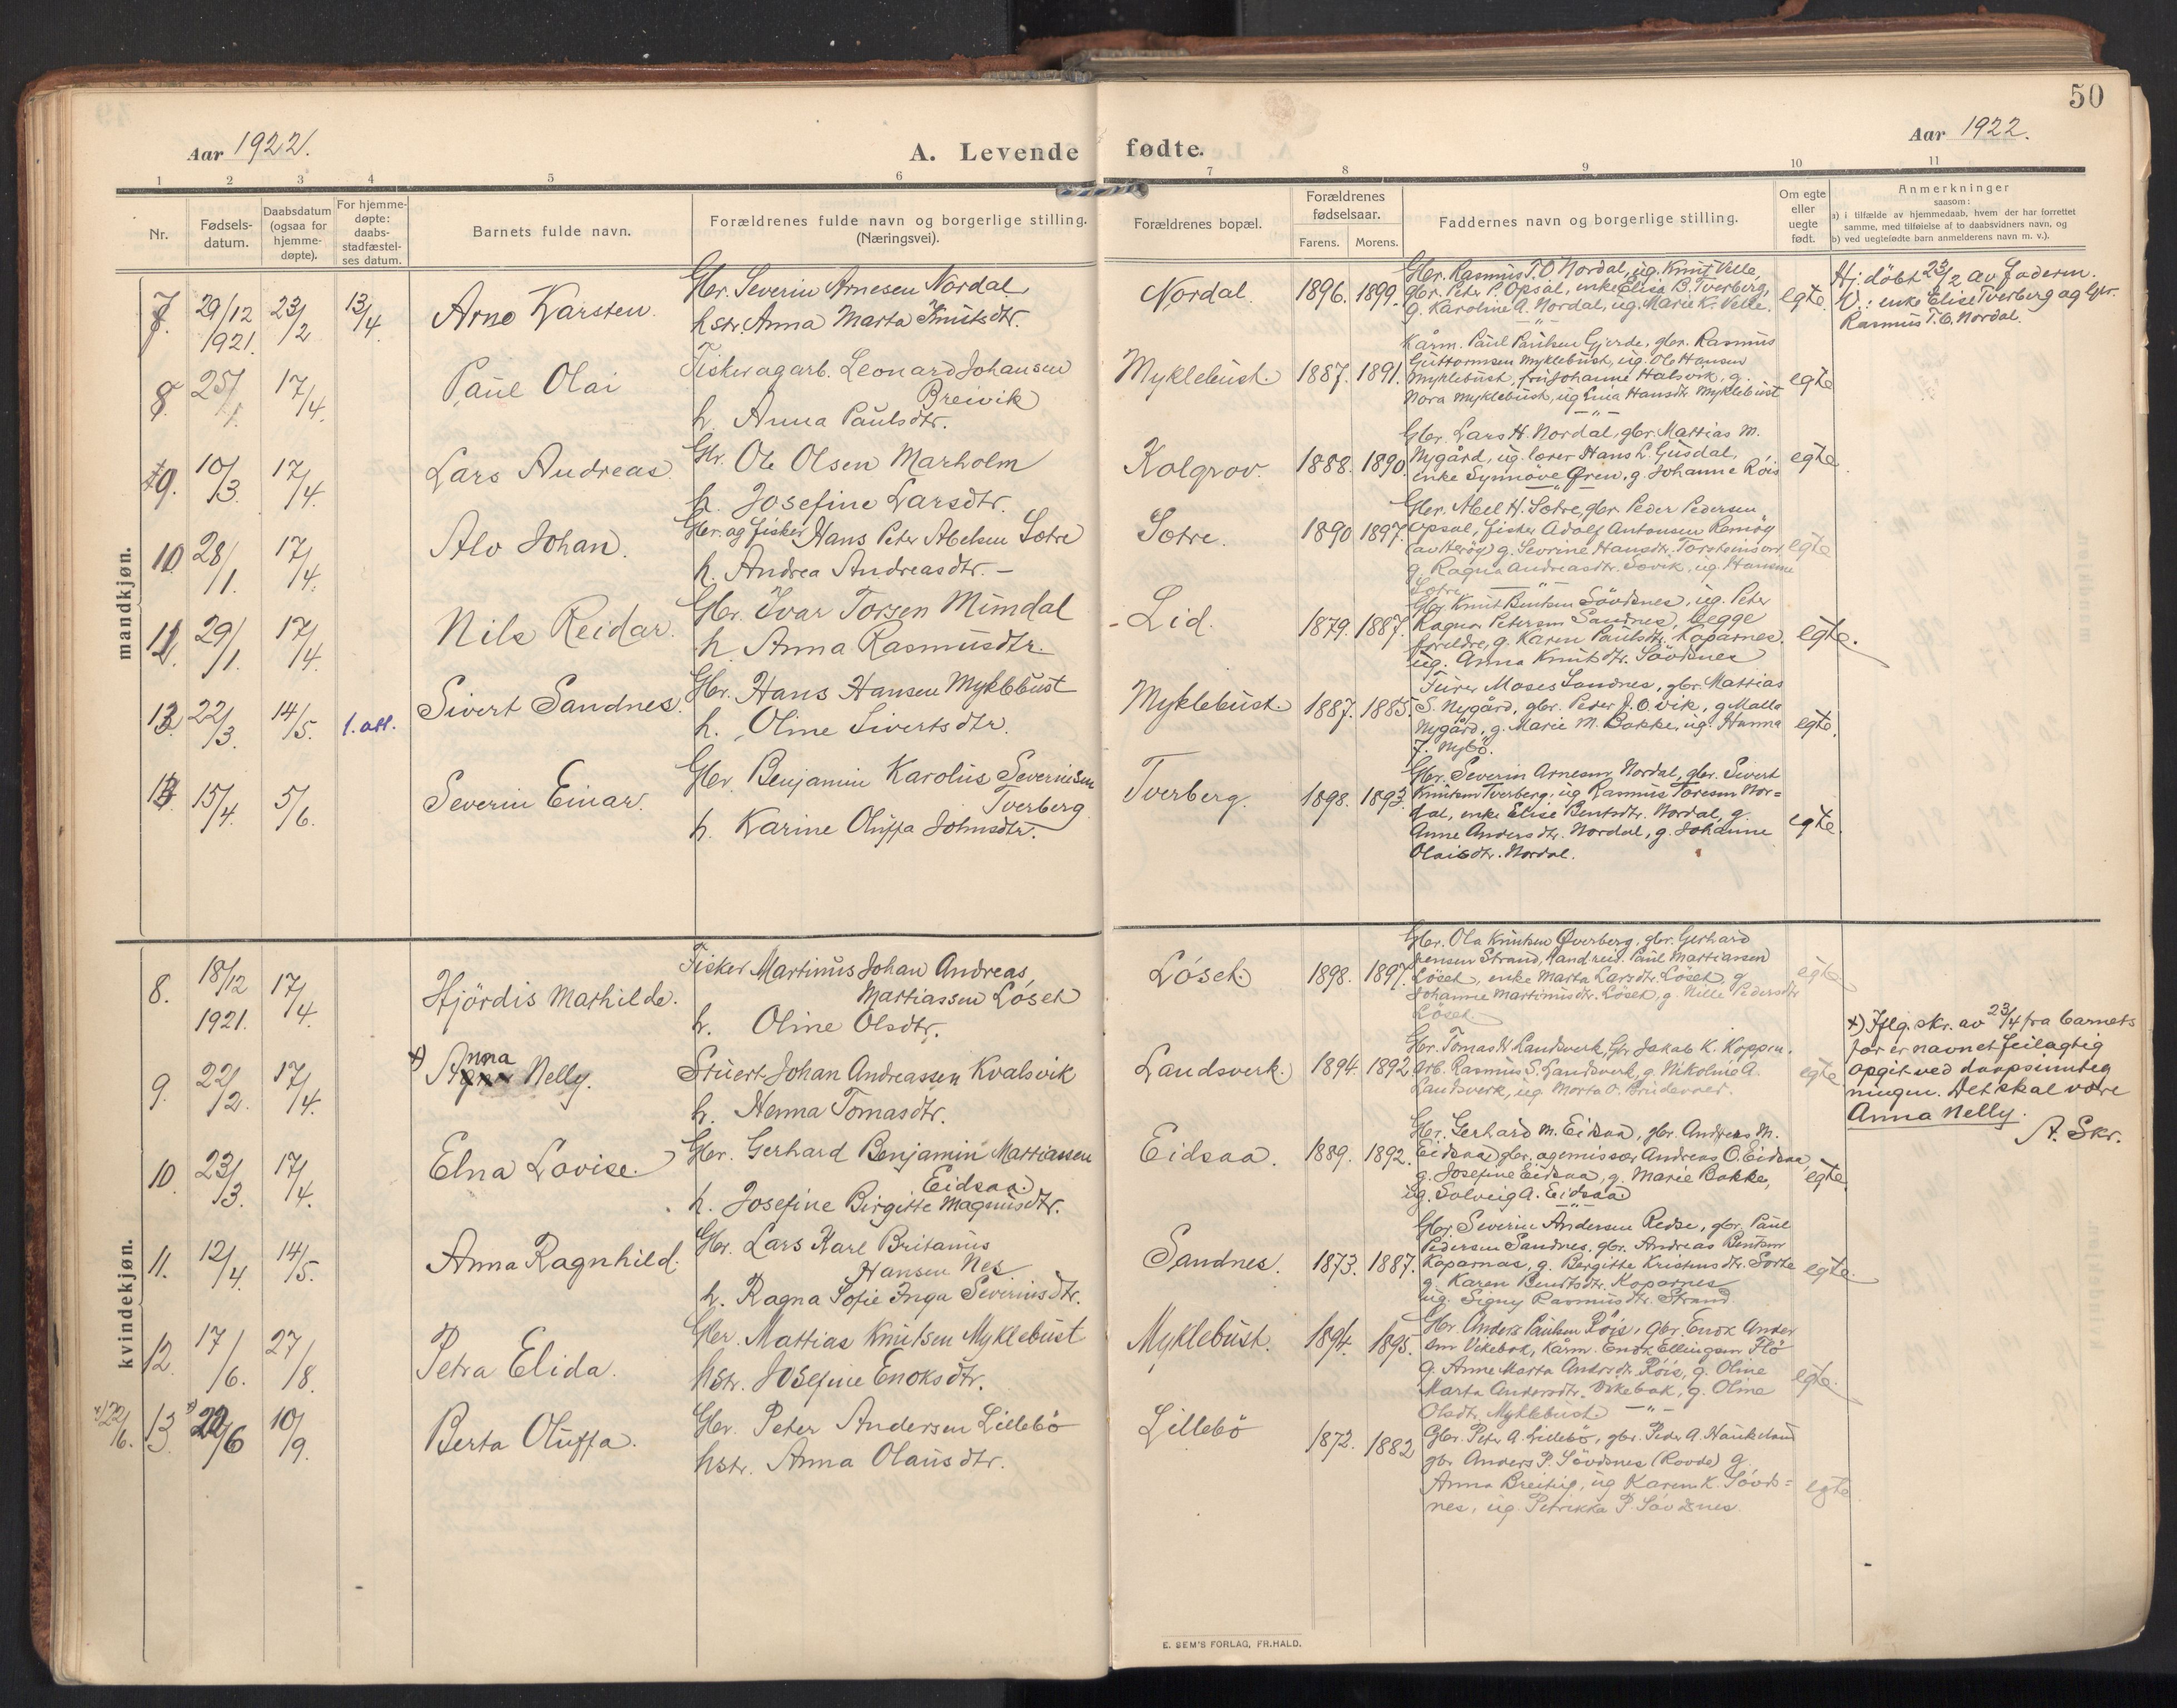 50
Aar 1922.
A. Levende fødte.
Aar 1922.
1 2 3 4 5 6 7 8 9 10 11
Nr.
Fødsels-
datum.
Daabsdatum
(ogsaa for
hjemme-
døpte).
For hjemme-
døpte:
daabs-
stadfæstel-
ses datum.
Barnets fulde navn.
Forældrenes fulde navn og borgerlige stilling.
(Næringsvei).
Forældrenes bopæl.
Forældrenes
fødselsaar.
Farens. Morens.
Faddernes navn og borgerlige stilling.
Om egte
eller
uegte
født.
Anmerkninger
saasom:
a) i tilfælde av hjemmedaab, hvem der har forrettet
samme, med tilføielse af to daabsvidners navn, og
b) ved uegtefødte barn anmelderens navn m. v.).
mandkjøn.
7. 29/12 1921. 23/2 13/4
Arne Karsten.
Gbr. Severin Arnesen Nordal,
hstr. Anna Marta Knutsdtr.
Nordal. 1896. 1899.
Gbr. Rasmus T. O. Nordal, ug. Knut Velle,
gbr. Peter P. Opsal, enke Elise B. Tverberg,
g. Karoline A. Nordal, ug. Marie K. Velle.
egte.
Hj. døbt 23/2 av faderen.
V.: enke Elise Tverberg og gbr.
Rasmus T. O. Nordal.
8. 25/1. 17/4.
Paul Olai
Fisker og arb. Leonard Johansen
Breivik
h. Anna Paulsdtr.
Myklebust. 1887. 1891.
Kårm. Paul Paulsen Gjerde, gbr. Rasmus
Guttormsen Myklebust, ug. Ole Hansen
Myklebust, fru Johanne Halsvik, g.
Nora Myklebust, ug. Lina Hansdtr Myklebust
egte
9. 10/3. 17/4.
Lars Andreas.
Gbr. Ole Olsen Marholm
h. Josefine Larsdtr.
Kolgrov. 1888. 1890.
Gbr. Lars H. Nordal, gbr. Mattias M.
Nygård, ug. lærer Hans L. Gusdal,
enke Synnöve Øren, g. Johanne Röis
egte.
10. 28/1. 17/4.
Alv Johan.
Gbr. og fisker Hans Peter Abelsen Sætre
h. Andrea Andreasdtr. –
Sætre. 1890 1897.
Gbr. Abel H. Sætre, gbr. Peder Pedersen
Opsal, fisker Adolf Antonsen Remöy
(av Heröy) g. Sevrine Hansdtr.
g. Ragna Andreasdtr. Sævik, ug. Hansine
Sætre.
egte
11. 29/1. 17/4.
Nils Reidar.
Gbr. Ivar Torsen Mimdal
h. Anna Rasmusdtr.
Lid. 1879. 1887.
Gbr. Knut Bentsen Sövdsnes, ug. Peter
Ragnar Petersen Sandnes, begge
foreldre, g. Karen Paulsdtr. Koparnes.
ug. Anna Knutsdtr. Sövdsnes
egte.
12. 22/3. 14/5. 1. att.
Sivert Sandnes.
Gbr. Hans Hansen Myklebust
h. Oline Sivertsdtr.
Myklebust. 1887. 1885.
Furer Moses Sandnes, gbr. Mattias
S. Nygård, gbr. Peder J. O. Vik, g. Malla
Nygård, g. Marie M. Bakke, ug. Hanna
J. Nybö.
egte.
13. 15/4. 5/6.
Severin Einar.
Gbr. Benjamin Karolus Severinsen
Tverberg
h. Karine Oluffa Johnsdtr.
Tverberg. 1898. 1893.
Gbr. Severin Arnesen Nordal, gbr. Sivert
Knutsen Tverberg, ug. Rasmus Toresen Nor=
dal, enke Elise Bentsdtr. Nordal, g.
Anne Andersdtr. Nordal, g. Johanne
Olaisdtr. Nordal.
egte.
kvindekjøn.
8. 18/12 1921. 17/4.
Hjördis Mathilde.
Fisker Martinus Johan Andreas
Martiassen Löset
h. Oline Olsdtr.
Löset. 1898. 1897.
Gbr. Ola Knutsen Øverberg, gbr. Gerhard
Jensen Strand, Paul Martiassen
Löset, enke Marta Larsdtr. Löset, g.
Johanne Martinusdtr. Löset, g. Nille Pedersdtr
Löset.
egte
9. 22/2. 17/4.
x) Anna Nelly.
Stuert Johan Andreassen Kvalsvik
h. Hanna Tomasdtr.
Landsverk. 1894. 1892.
Gbr. Tomas H. Landsverk, Gbr. Jakob K. Koppen,
arb. Rasmus S. Landsverk, g. Nikoline A.
Landsverk, ug. Marta O.
egte
x) Iflg. skr. av 23/4 fra barnets
far er navnet feilagtig
opgit ved daapsinnteg
ningen. Det skal være
Anna Nelly.
A. Skr.
10. 23/3. 17/4.
Elna Lovise.
Gbr. Gerhard Benjamin Mattiassen
Eidsaa.
h. Josefine Birgitte Magnusdtr.
Eidsaa. 1889. 1892.
Gbr. Gerhard M. Eidsaa, gbr. Anders M.
Eidsaa, gbr. og emissær Andreas O. Eidsaa
g. Josefine Eidsaa, g. Marie Bakke,
ug. Solveig A. Eidsaa
egte.
11. 12/4. 14/5.
Anna Ragnhild.
Gbr. Lars Karl Britanus
Hansen Nes
h. Ragna Sofie Inga Severinsdtr.
Sandnes. 1873. 1887.
Gbr. Severin Andersen Redse, gbr. Paul
Pedersen Sandnes, gbr. Andreas Bentsen
Koparnæs, g. Bergitte Kristensdtr. Sorte
g. Karen Bendtsdtr. Koparnes
ug. Signy Rasmusdtr. Strand
egte.
12. 17/6. 27/8.
Petra Elida.
Gbr. Mattias Knutsen Myklebust
hstr. Josefine Enoksdtr.
Myklebust. 1894. 1895.
Gbr. Anders Paulsen Röis, gbr. Enok Ander
sen Vikebak, kårm. Enok Ellingsen Flö
g. Anne Marta Andersdtr. Röis, g. Oline
Marta Andersdtr. Vikebak, g. Oline
Olsdtr. Myklebust – " –
egte.
x) 22/6. 13. x) 22/6 10/9.
Berta Oluffa.
Gbr. Peter Andersen Lillebö
hstr. Anna Olausdtr.
Lillebö 1872. 1882
Gbr. Peter A. Lillebö, gbr. Peder A. Haukeland
gbr Anders P. Sövdsnes (Rovde) g.
Anna Breitig, ug Karen K. Sövds=
nes, ug. Petrikka P. Sövdsnes.
egte
E. SEM'S FORLAG, FR.HALD.